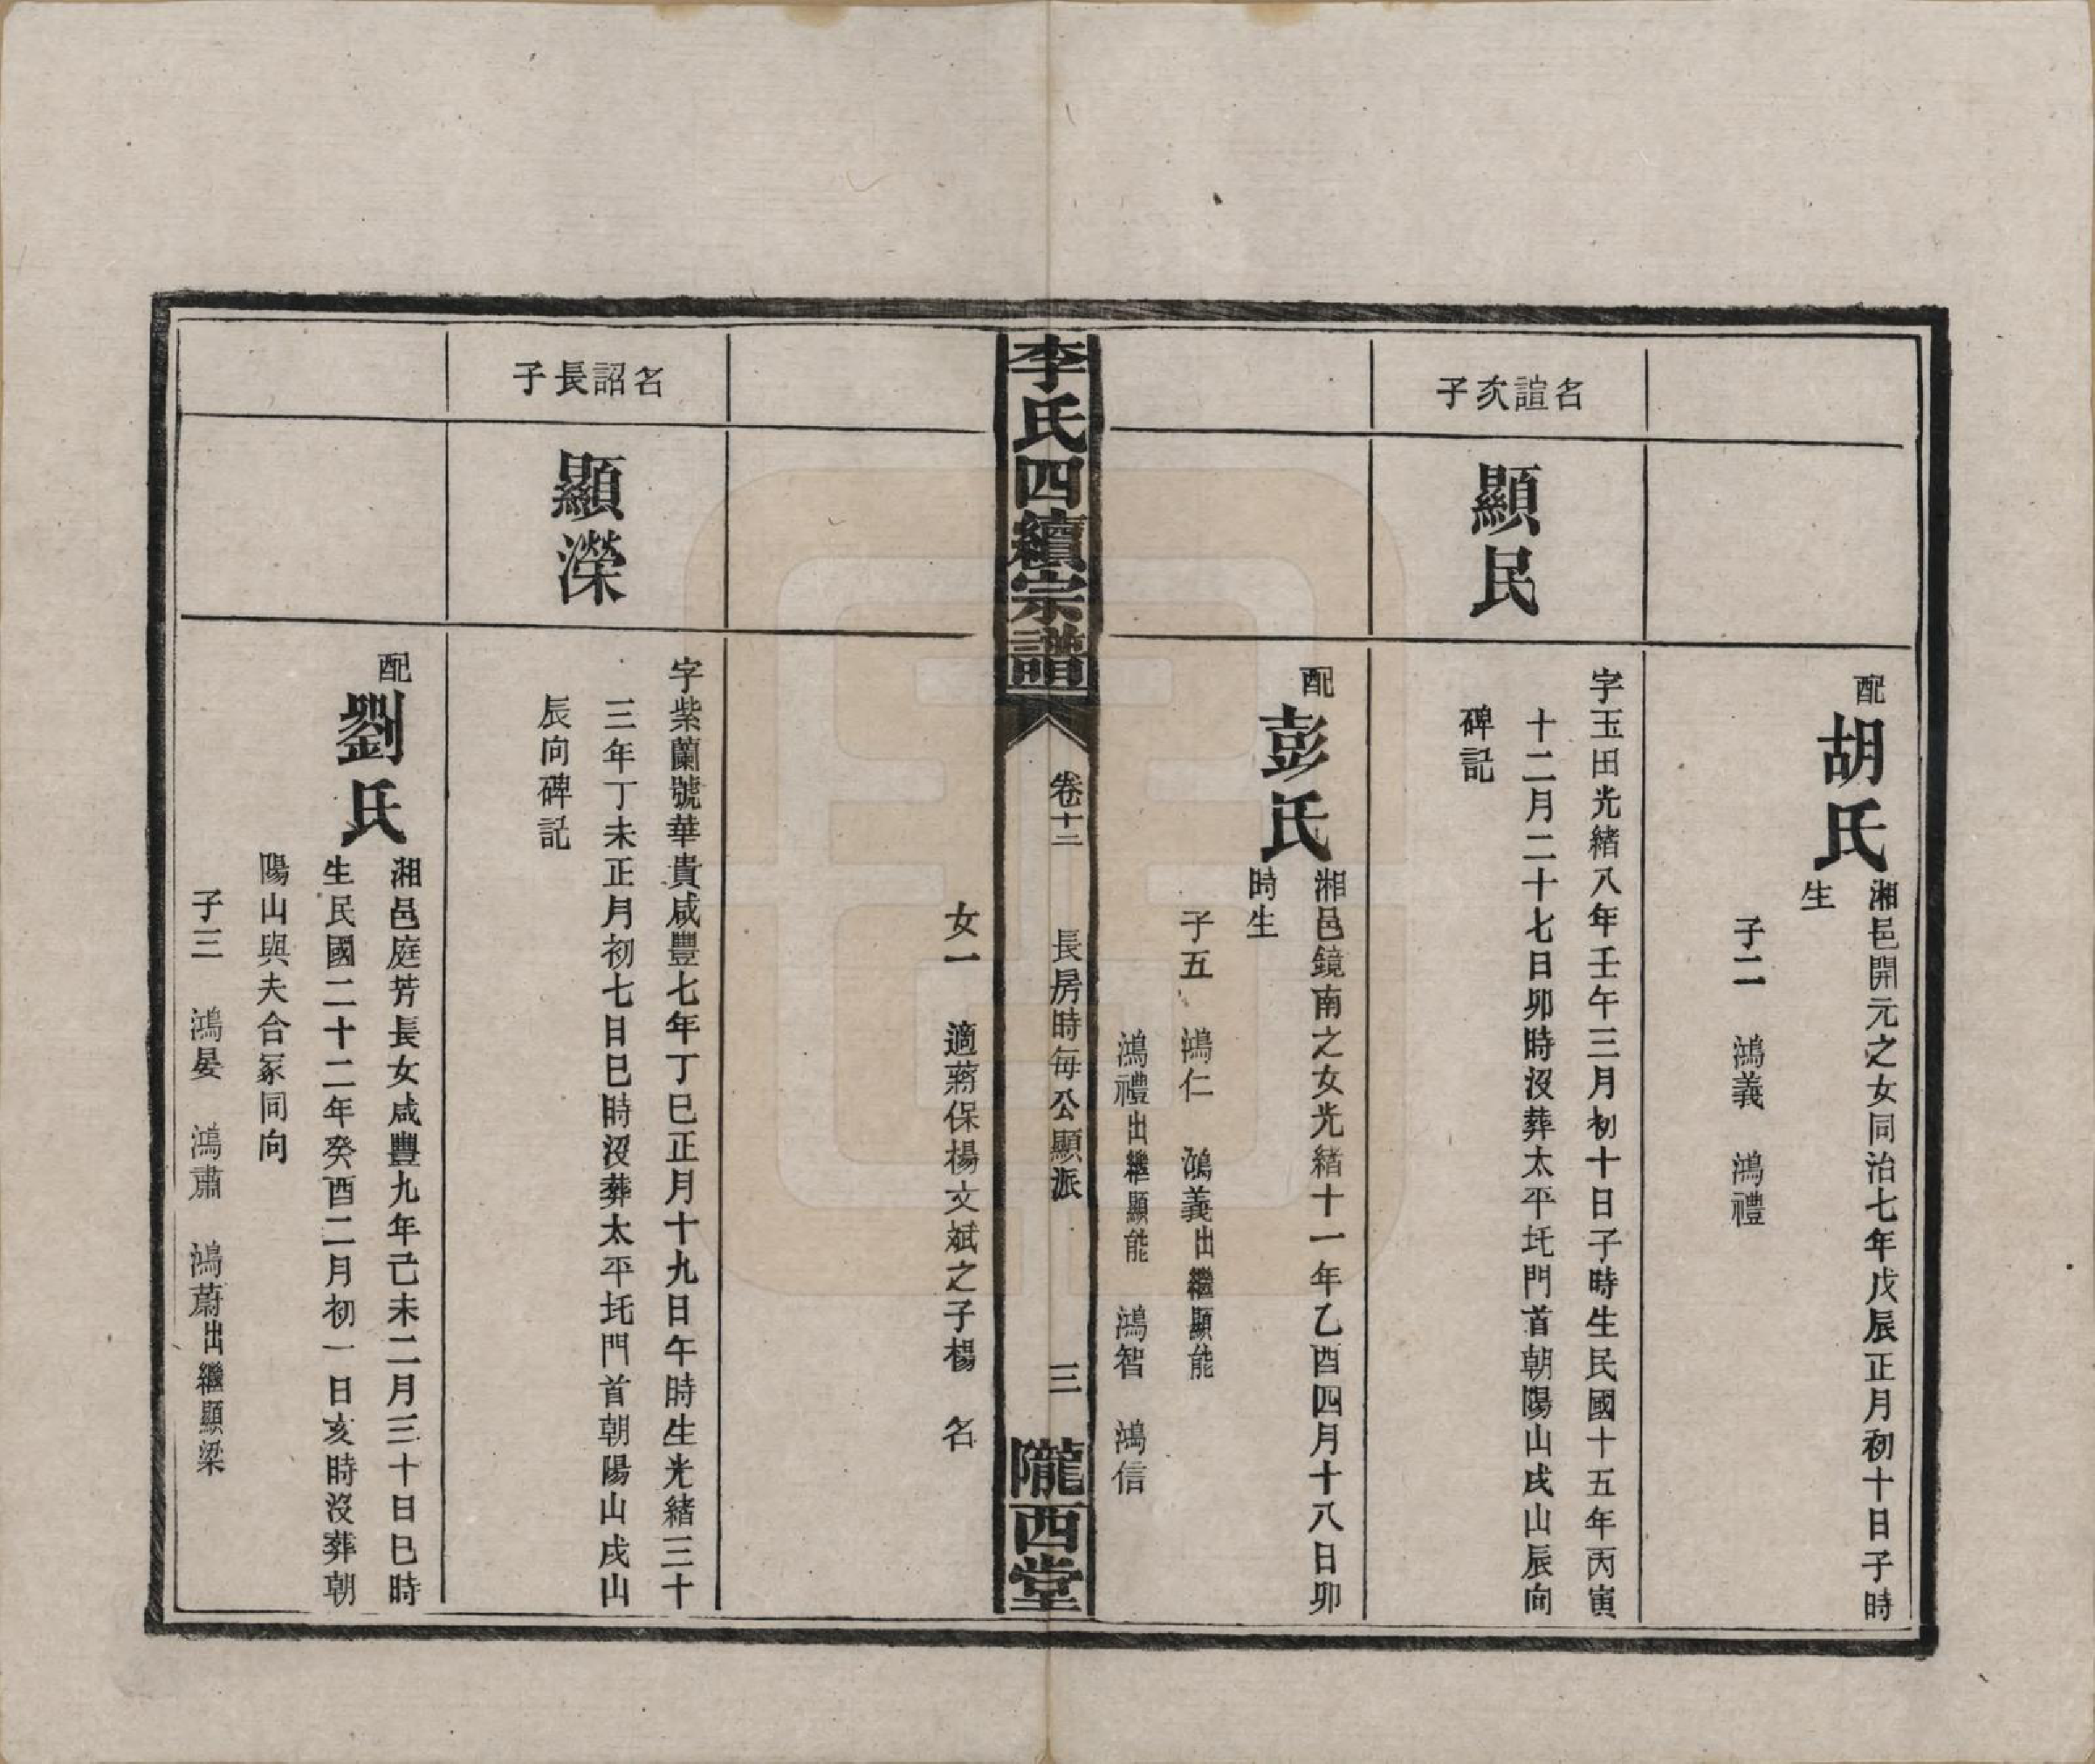 配胡氏
湘邑開元之女同治七年戊辰正月初十日子時
生
子二　鴻義　鴻禮
名諠次子
顯民
字玉田光緒八年壬午三月初十日子時生民國十五年丙寅
十二月二十七日卯時沒葬太平圫門首朝陽山戌山辰向
碑記
配彭氏
湘邑鏡南之女光緒十一年乙酉四月十八日卯
時生
子五　鴻仁　鴻義出繼顯能
鴻禮出繼顯能　鴻智　鴻信
李氏四續宗譜
卷十二
長房時每公顯派
三
隴西堂
女一　適蔣保楊文斌之子楊　名
名詔長子
顯濴
字紫蘭號華貴咸豐七年丁巳正月十九日午時生光緒三十
三年丁未正月初七日巳時沒葬太平圫門首朝陽山戌山
辰向碑記
配劉氏
湘邑庭芳長女咸豐九年己未二月三十日巳時
生民國二十二年癸酉二月初一日亥時沒葬朝
陽山與夫合冢同向
子三　鴻晏　鴻肅　鴻蔚出繼顯梁